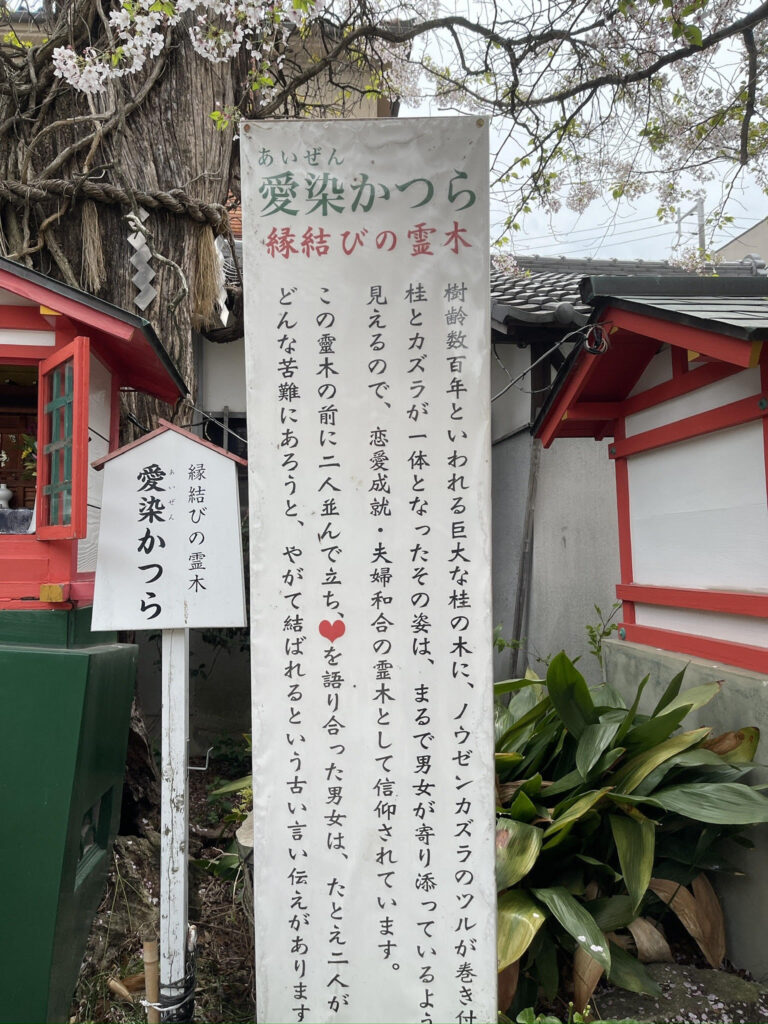 あいぜん
愛染かつら
縁結びの霊木
樹齢数百年といわれる巨大な桂の木に、ノウゼンカズラのツルが巻き付
桂とカズラが一体となったその姿は、まるで男女が寄り添っているよう
見えるので、恋愛成就・夫婦和合の霊木として信仰されています。
この霊木の前に二人並んで立ち、❤を語り合った男女は、たとえ二人が
どんな苦難にあろうと、やがて結ばれるという古い言い伝えがあります
縁結びの霊木
あいぜん
愛染かつら